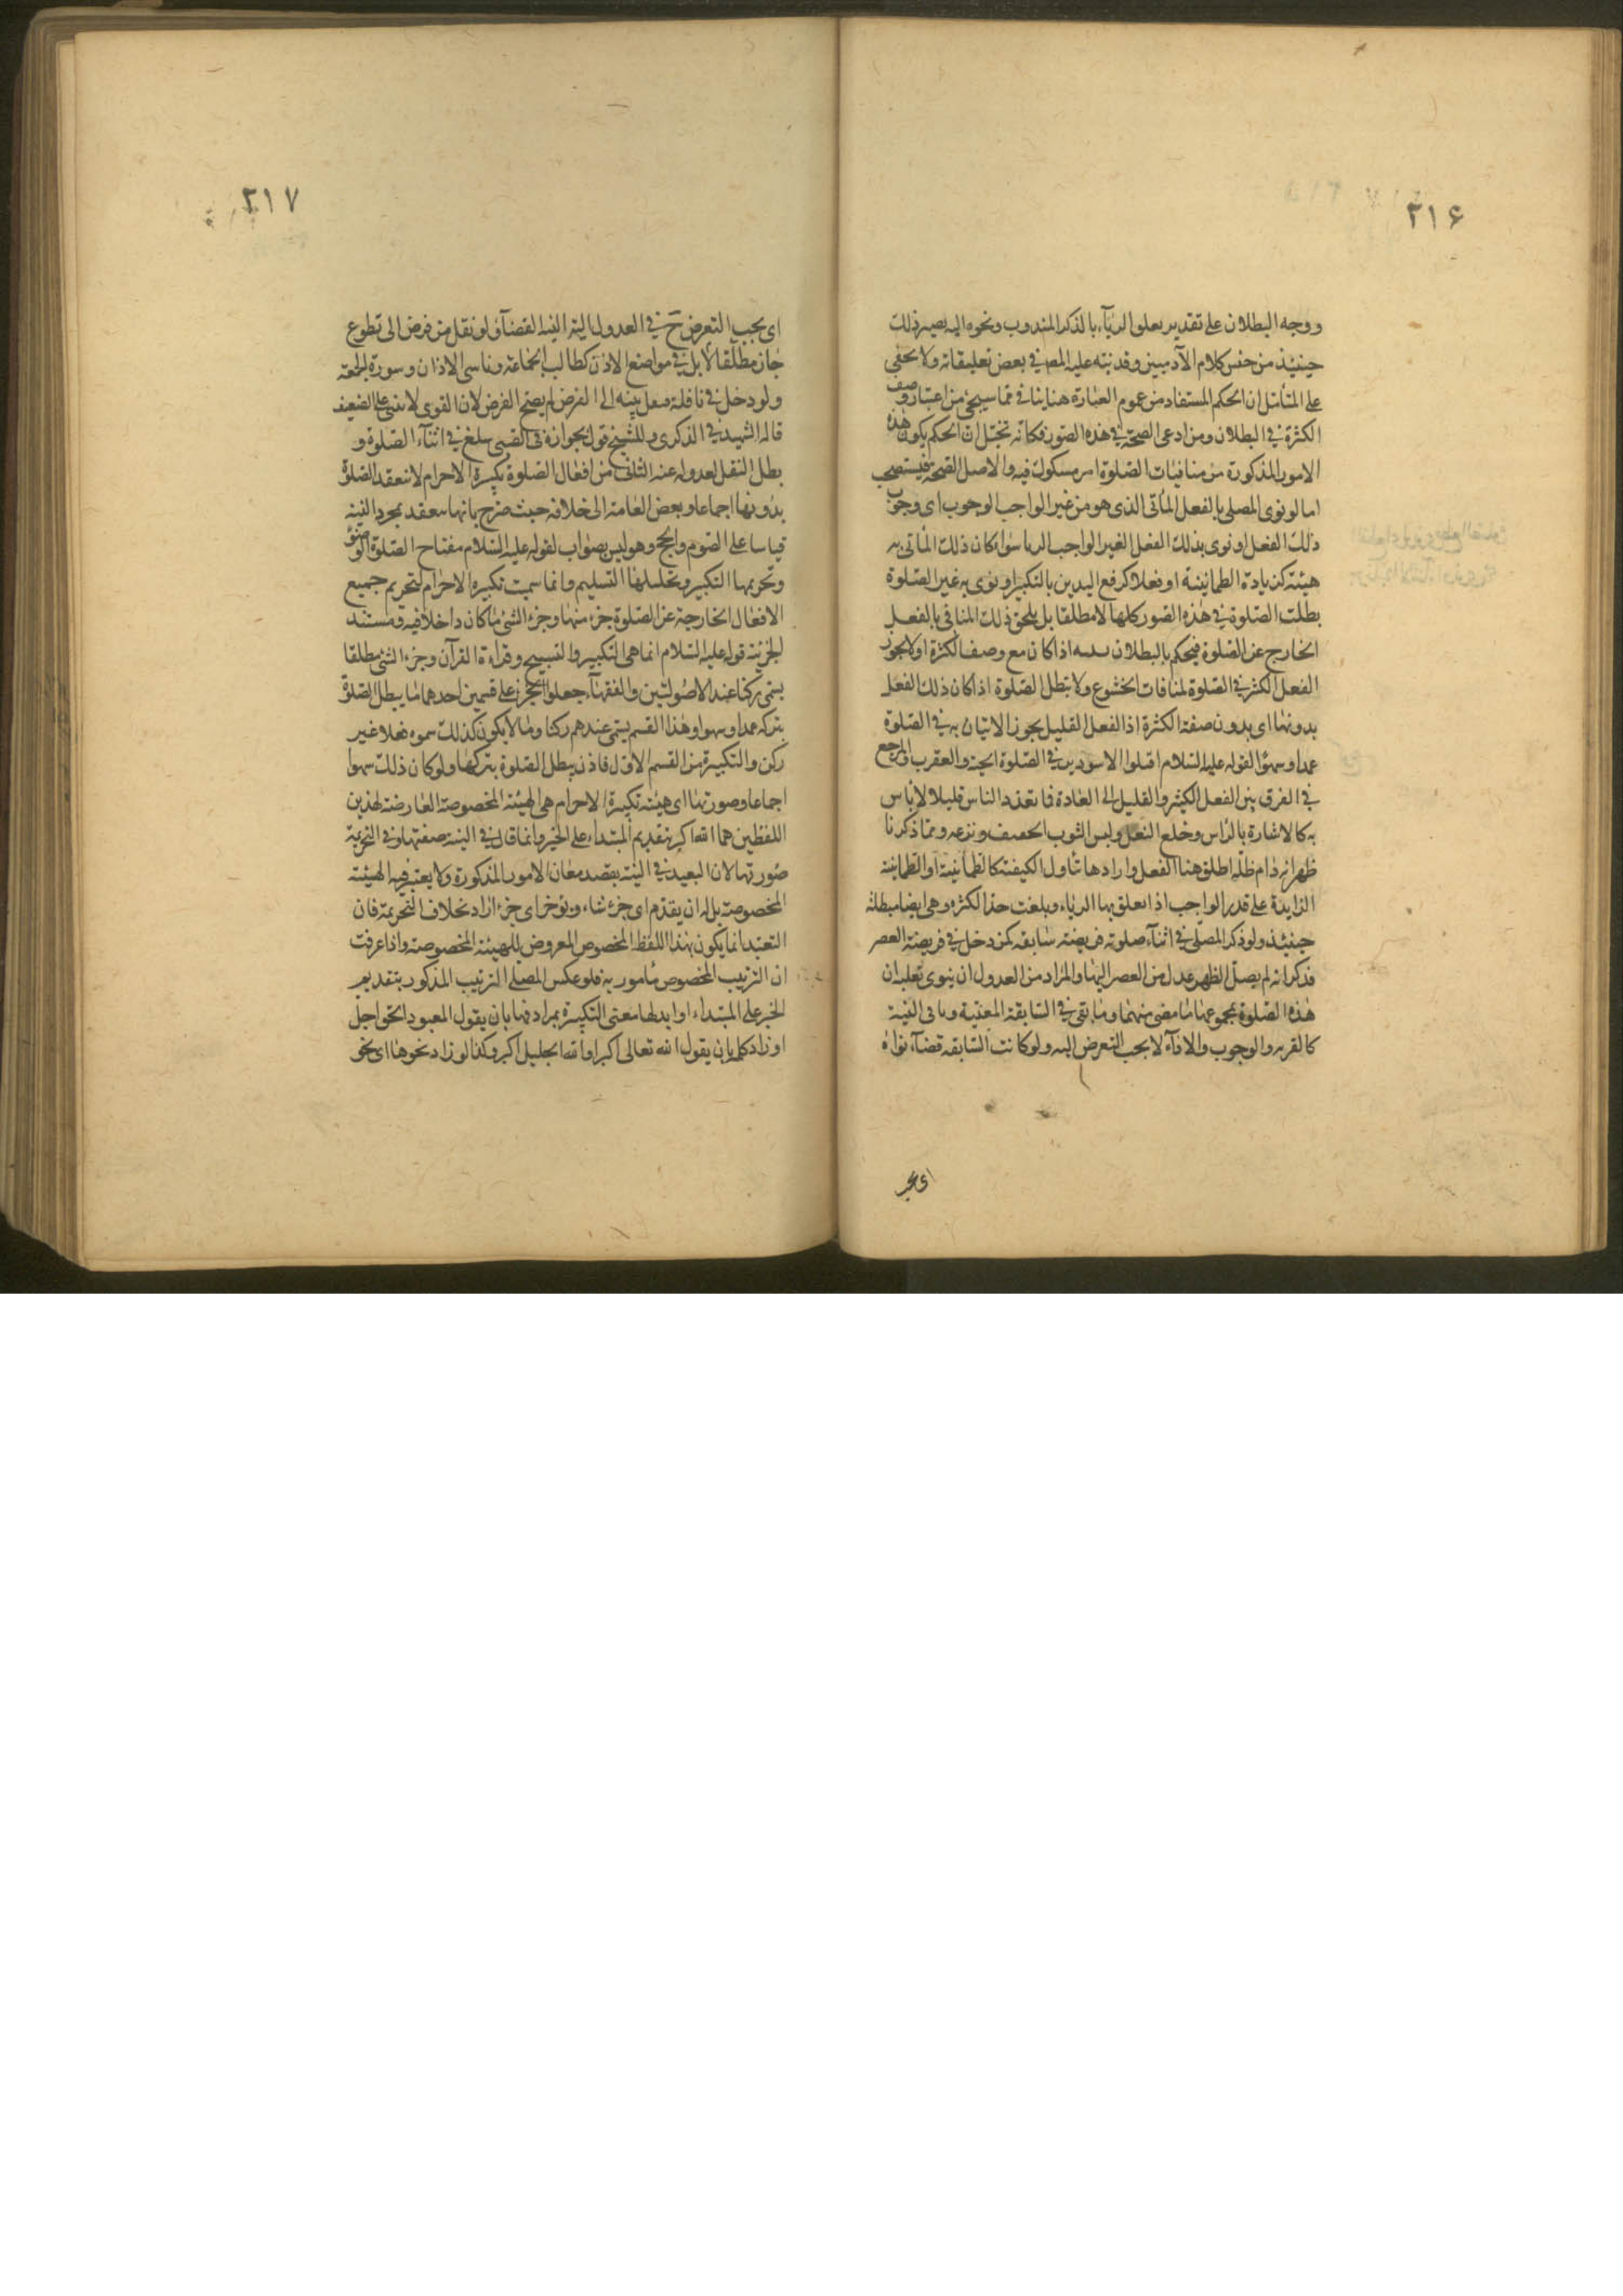 ٢١۶
ووجه البطلان على تقدير تعلق الريآء بالذكر المندوب ونحوه انه يصير ذلك
حينئذ من جنس كلام الآدميين وقد نبه عليه المص في بعض تعليقاته ولا يخفى
على المتأمل ان الحكم المستفاد من عموم العبارة هنا ينافي مما سيجئ من اعتبار وصف
الكثرة في البطلان ومن ادعى الصحة في هذه الصور فكانه تخيل ان الحكم بكون هذه
الامور المذكورة من منافيات الصلوة امر مسكوت فيه والاصل الصحة فيستصحب
اما لو نوى المصلي بالفعل المأتي الذى هو من غير الواجب الوجوب اى وجوب
ذلك الفعل او نوى بذلك الفعل الغير الواجب الريا سواء كان ذلك المأتى به
هيئة كزيادة الطمانينة او فعلا كرفع اليدين بالتكبير او نوى به غير الصلوة
بطلت الصلوة في هذه الصور كلها لا مطلقا بل يلحق ذلك المنافى بالفعل
الخارج عن الصلوة فيحكم بالبطلان اذا كان مع وصف الكثرة اولا يجوز
الفعل الكثير في الصلوة لمنافات الخشوع ولا تبطل الصلوة اذا كان ذلك الفعل
بدونها اى بدون صفة الكثرة اذ الفعل القليل يجوز الاتيان به في الصلوة
عمدا وسهوا لقوله عليه السلام اقتلوا الاسودين في الصلوة الحية والعقرب والمرجع
في الفرق بين الفعل الكثير والقليل الى العادة فما تعده الناس قليلا لا باس
به كالاشارة بالراس وخلع النعل ولبس الثوب الخفيف ونزعه ومما ذكرنا
ظهر انه دام ظله اطلق هنا الفعل واراد ما تناول الكيفية كالطمانينة او الطمانينة
الزايدة على قدر الواجب اذا تعلق بها الرياء وبلغت حد الكثرة وهي ايضا مبطلة
حينئذ ولو ذكر المصلى في اثنآء صلوته فريضة سابقه كمن دخل في فريضة العصر
فذكر انه لم يصل الظهر عدل من العصر اليها والمراد من العدول ان ينوى بقلبه ان
هذه الصلوة بمجموعها ما مضى منها وما بقى في السابقة المعينة وباقى النية
كالقربه والوجوب والادآء لا يجب التعرض اليه ولو كانت السابقه قضآء نواه
اى يجب
٢١٧
اى يجب التعرض ح في العدول اليه النية القضآء ولو نقل من فرض الى تطوع
جاز مطلقا لا بل في مواضع الاذن كطالب الجماعة وناسى الاذان وسورة الجمعة
ولو دخل في نافلة فنقل نيته الى الفرض لم يصح الفرض لان القوى لا يبنى على الضعيف
قاله الشهيد في الذكرى وللشيخ قول بجوازه فى الصبى يبلغ في اثنآء الصلوة و
بطل النقل لعدوله عنه الثانى من افعال الصلوة تكبيرة الاحرام لا تنعقد الصلوة
بدونها اجماعا وبعض العامة الى خلافه حيث صرح بانها تنعقد بمجرد النية
قياسا على الصوم والحج وهو ليس بصواب لقوله عليه السلام مفتاح الصلوة الوضوء
وتحريمها التكبير وتحليلها التسليم وانما سميت تكبيرة الاحرام لتحريم جميع
الافعال الخارجة عن الصلوة جزء منها وجزء الشئ ما كان داخلا فيه ومستند
الجزئية قوله عليه السلام انما هى التكبير والتسبيح وقراءة القرآن وجزء الشئ مطلقا
يسمى ركنا عند الاصوليين والفقهآء جعلوا الجزء على قسمين احدهما ما يبطل الصلوة
بتركه عمدا وسهوا وهذا القسم يسمى عندهم ركنا وما لا يكون كذلك سموه فعلا غير
ركن والتكبيرة من القسم الاول فاذن يبطل الصلوة بتركها ولو كان ذلك سهوا
اجماعا وصورتها اى هيئة تكبيرة الاحرام هى الهيئة المخصوصة العارضة لهذين
اللفظين هما الله اكبر بتقديم المبتداء على الخبر وانما قال في النية صفتها وفي التحريمة
صورتها لان البعيد في النية بقصد معان الامور المذكورة ولا يعتبر فيه الهيئة
المخصوصة بل له ان يقدم اى جزء شاء ويؤخر اى جزء اراد بخلاف التحريمة فان
التعبد انما يكون بهذا اللفظ المخصوص المعروض للهيئة المخصوصة واذا عرفت
ان الترتيب المخصوص مامور به فلو عكس المصلى الترتيب المذكور بتقديم
الخبر على المبتداء او ابدلها معنى التكبيرة بمرادفها بان يقول المعبود الحق اجل
او زاد كلمة بان يقول الله تعالى اكبر او الله الجليل اكبر وكذا لو زاد نحوها اى نحو